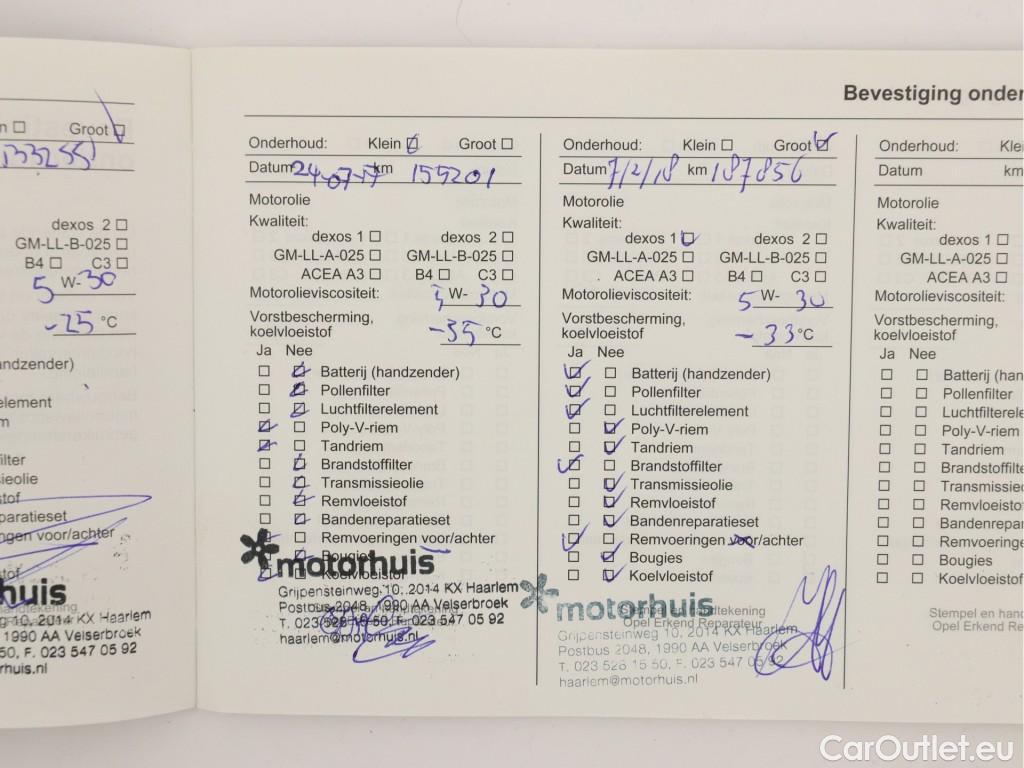 Bevestiging onder
n Groot
133255
dexos 2
GM-LL-B-025
B4 C3
5 W-30
-25 °C
andzender)
element
m
ilter
issieolie
stof
paratieset
ngen voor/achter
tof
rhuis
10, 2014 KX Haarlem
1990 AA Velserbroek
50, F. 023 547 05 92
rhuis.nl
Onderhoud: Klein Groot
Datum 24-07-17 km 159201
Motorolie
Kwaliteit:
dexos 1 dexos 2
GM-LL-A-025 GM-LL-B-025
ACEA A3 B4 C3
Motorolieviscositeit: 5 W- 30
Vorstbescherming,
koelvloeistof -35 °C
Ja Nee
Batterij (handzender)
Pollenfilter
Luchtfilterelement
Poly-V-riem
Tandriem
Brandstoffilter
Transmissieolie
Remvloeistof
Bandenreparatieset
Remvoeringen voor/achter
Bougies
Koelvloeistof
motorhuis
Grijpensteinweg 10, 2014 KX Haarlem
Postbus 2048, 1990 AA Velserbroek
T. 023 528 15 50, F. 023 547 05 92
haarlem@motorhuis.nl
Onderhoud: Klein Groot
Datum 7/2/18 km 187856
Motorolie
Kwaliteit:
dexos 1 dexos 2
GM-LL-A-025 GM-LL-B-025
ACEA A3 B4 C3
Motorolieviscositeit: 5 W- 30
Vorstbescherming,
koelvloeistof -33 °C
Ja Nee
Batterij (handzender)
Pollenfilter
Luchtfilterelement
Poly-V-riem
Tandriem
Brandstoffilter
Transmissieolie
Remvloeistof
Bandenreparatieset
Remvoeringen voor/achter
Bougies
Koelvloeistof
motorhuis
Stempel en handtekening
Opel Erkend Reparateur
Grijpensteinweg 10, 2014 KX Haarlem
Postbus 2048, 1990 AA Velserbroek
T. 023 528 15 50, F. 023 547 05 92
haarlem@motorhuis.nl
Onderhoud: Klein
Datum km
Motorolie
Kwaliteit:
dexos 1
GM-LL-A-025
ACEA A3
Motorolieviscositeit:
Vorstbescherming,
koelvloeistof
Ja Nee
Batterij (han
Pollenfilter
Luchtfilterele
Poly-V-riem
Tandriem
Brandstoffilte
Transmissieo
Remvloeisto
Bandenrepara
Remvoeringe
Bougies
Koelvloeistof
Stempel en han
Opel Erkend Rep
CarOutlet.eu